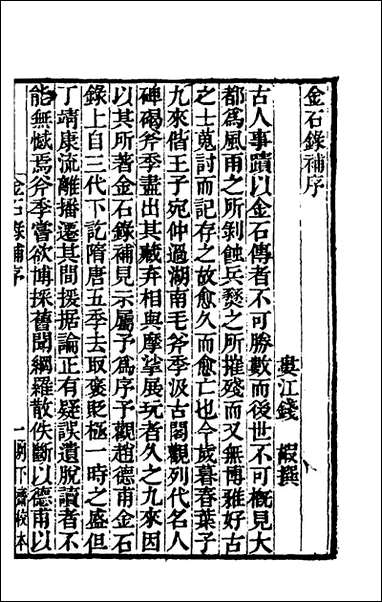 金石錄補序
婁江錢　嘏撰
古人事蹟以金石傳者不可勝數而後世不可槪見大
都爲風雨之所剝蝕兵燹之所摧殘而又無博雅好古
之士蒐討而記存之故愈久而愈亡也今歲暮春葉子
九來偕王子宛仲過湖南毛斧季汲古閣觀列代名人
碑碣斧季盡出其藏弆相與摩挲展玩者久之九來因
以其所著金石錄補見示屬予爲序予觀趙德甫金石
錄上自三代下訖隋唐五季去取褒貶極一時之盛但
丁靖康流離播遷其間援據論正有疑誤遺脫讀者不
能無憾焉斧季嘗欲博採舊聞網羅散佚斷以德甫以
金石錄補序
一
別下齋校本